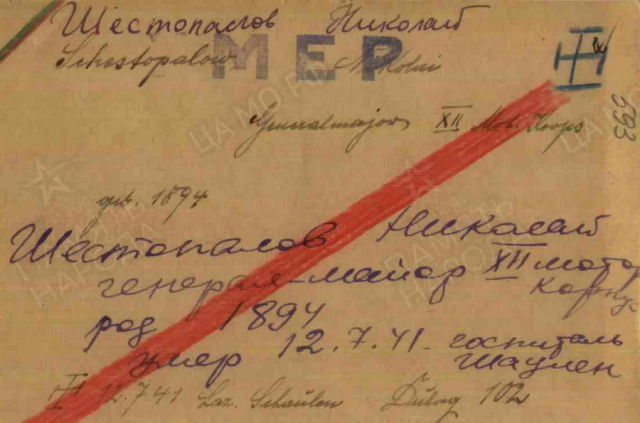 Шестопалов Николай
МЕР
Schestopalow Nikolai
Generalmajor XII Mot. Korps
593
geb. 1894
Шестопалов Николай
генерал-майор XII мотор
корпус
род 1894
умер 12.7.41. госпиталь
Шаулен
12.7.41 Laz. Schaulen Dulag 102
ЦА МО РФ
ПАМЯТЬ
НАРОДА